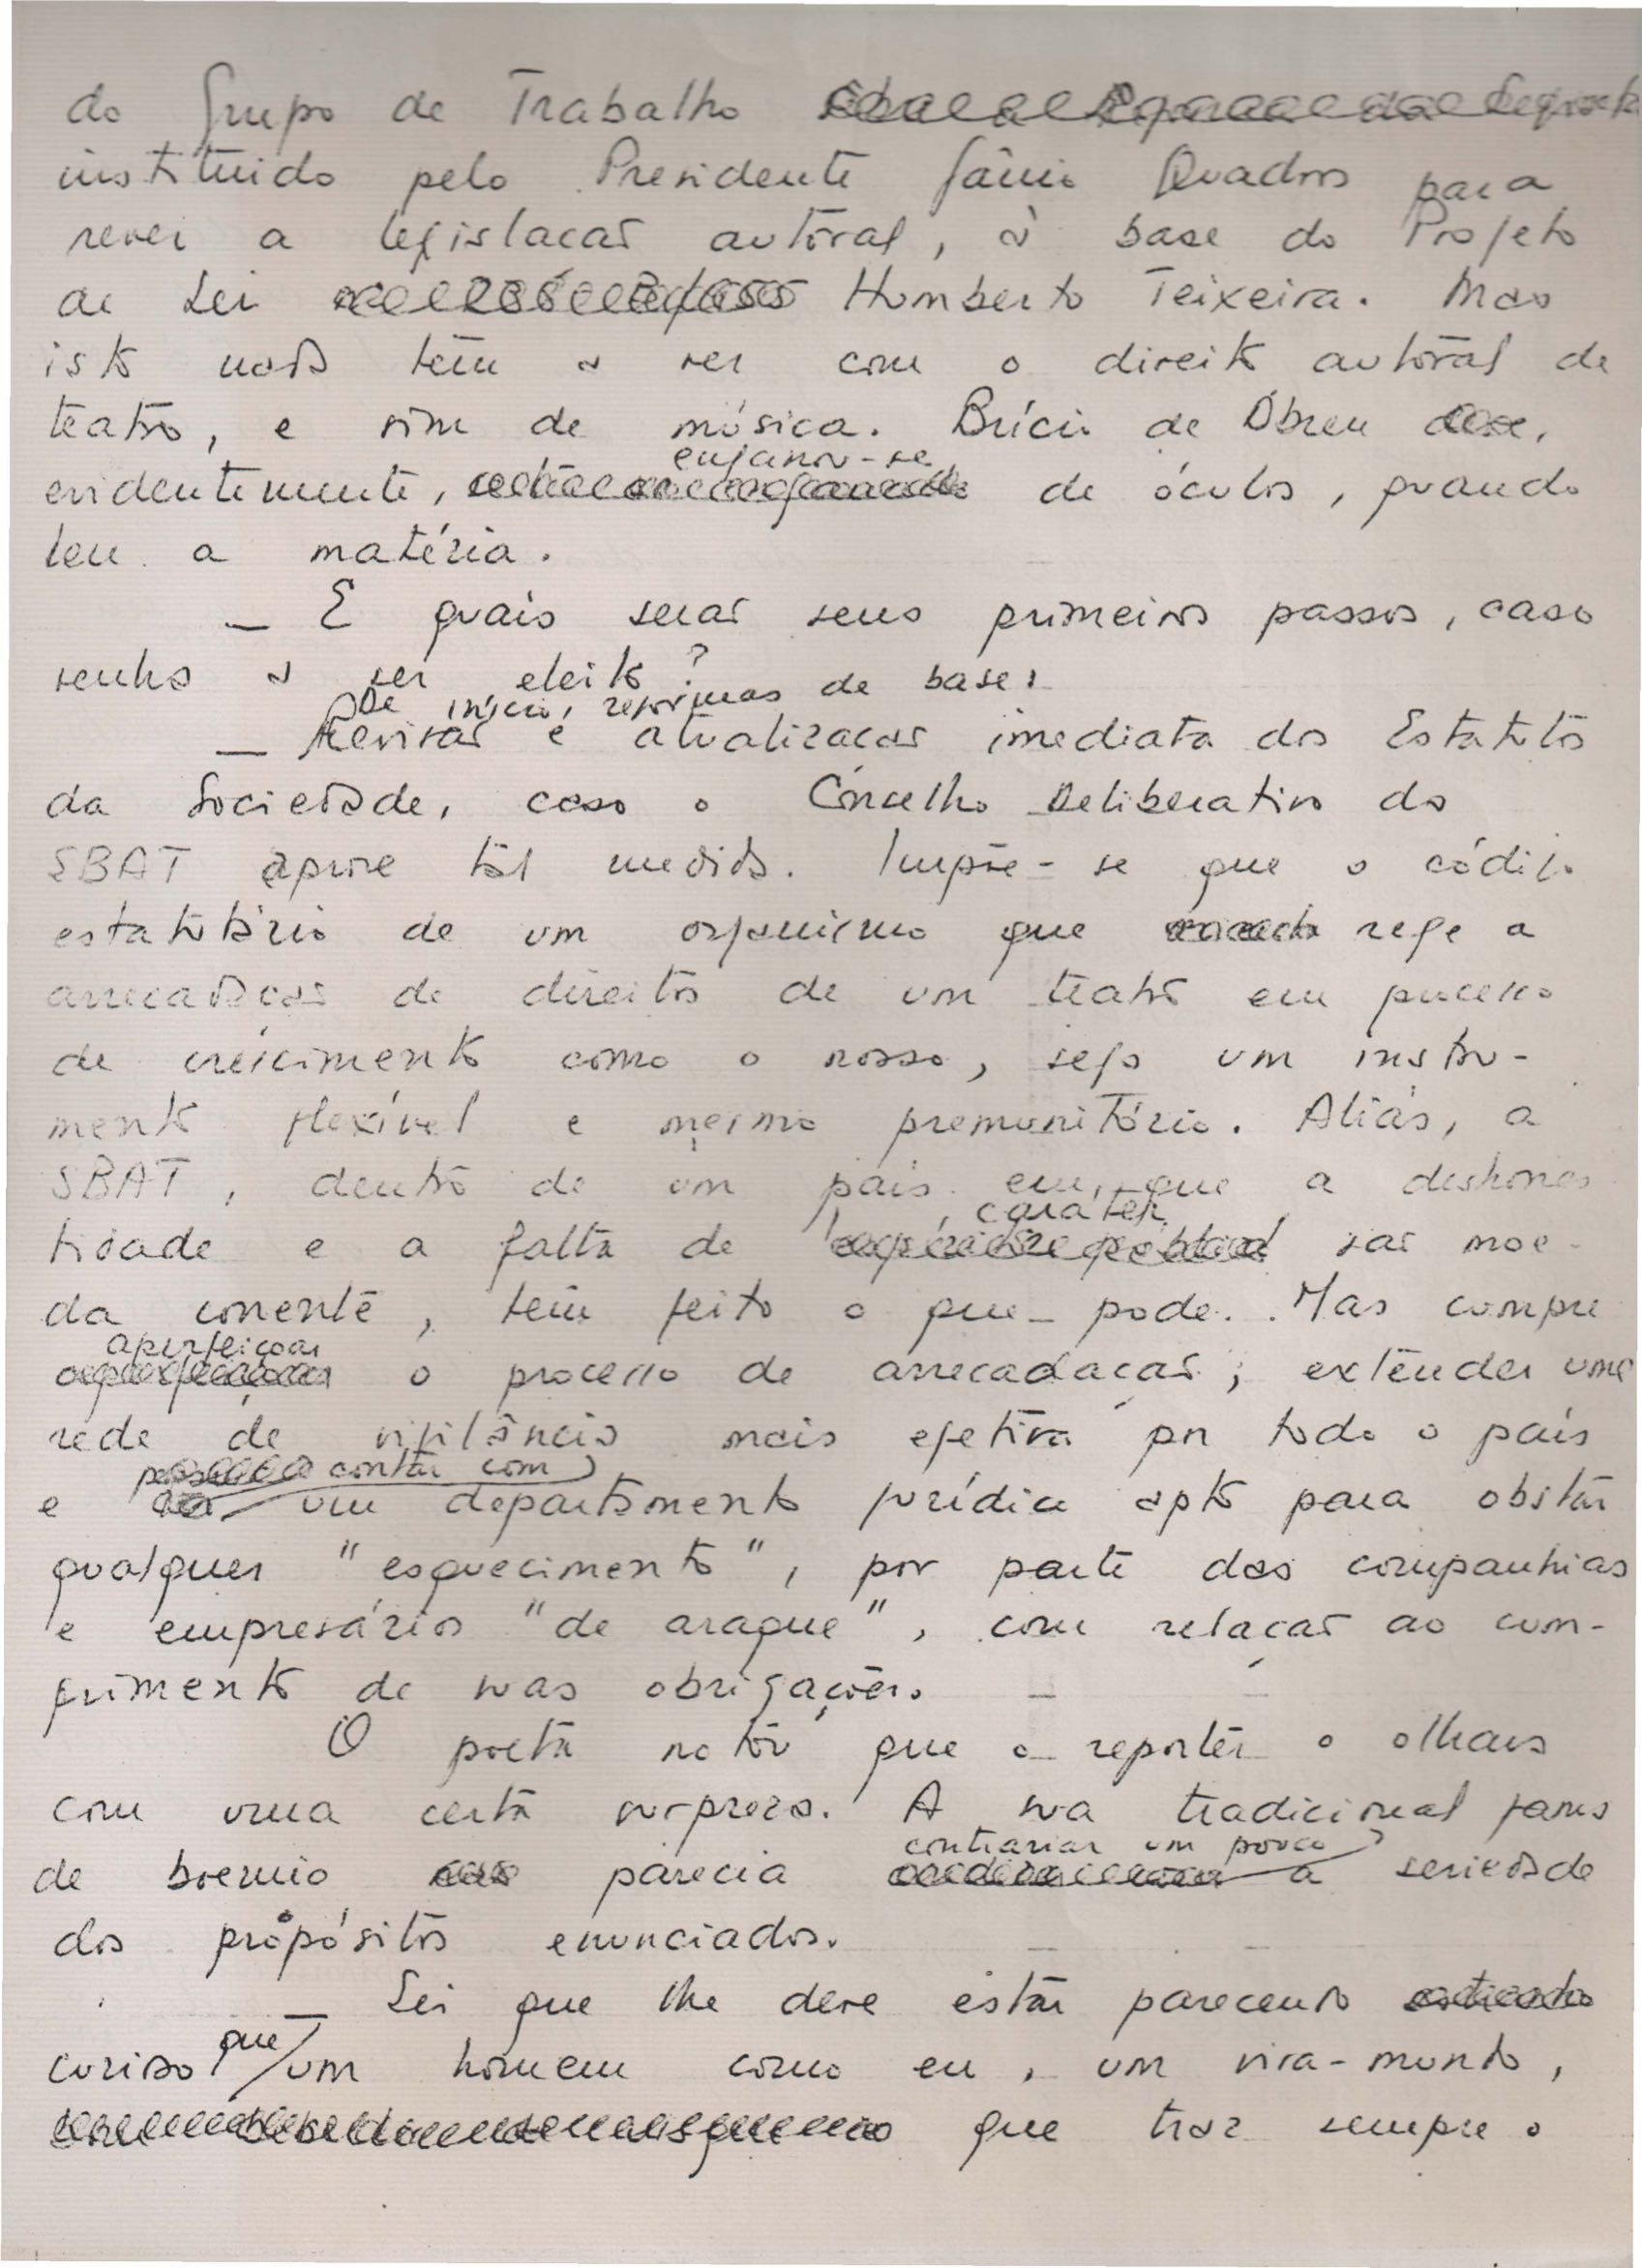 do Grupo de Trabalho
instituido pelo Presidente Jânio Quadros para
rever a legislação autoral, à base do Projeto
de Lei Humberto Teixeira. Mas
isto não tem a ver com o direito autoral de
teatro, e sim de música. Brício de Abreu
enganou-se
evidentemente, de óculos, quando
leu a matéria.
— E quais serão seus primeiros passos, caso
venha a ser eleito?
De início, reformas de base:
— Revisão e atualização imediata dos Estatutos
da Sociedade, caso o Concelho Deliberativo da
SBAT aprove tal medida. Impõe-se que o código
estatutário de um organismo que rege a
arrecadação de direitos de um teatro em processo
de crescimento como o nosso, seja um instru-
mento flexível e mesmo premunitório. Aliás, a
SBAT, dentro de um país em que a deshones
caráter
tidade e a falta de são moe-
da corrente, tem feito o que pode. Mas cumpre
aperfeiçoar
o processo de arrecadação; extender uma
rede de vigilância mais efetiva por todo o país
contar com
e um departamento jurídico apto para obstar
qualquer "esquecimento", por parte das companhias
e empresários "de araque", com relação ao cum-
primento de suas obrigações.
O poeta notou que o repórter o olhava
com uma certa surpresa. A sua tradicional fama
contrariar um pouco
de boemio parecia a seriedade
dos propósitos enunciados.
— Sei que lhe deve estar parecendo
curioso que um homem como eu, um vira-mundo,
que traz sempre o